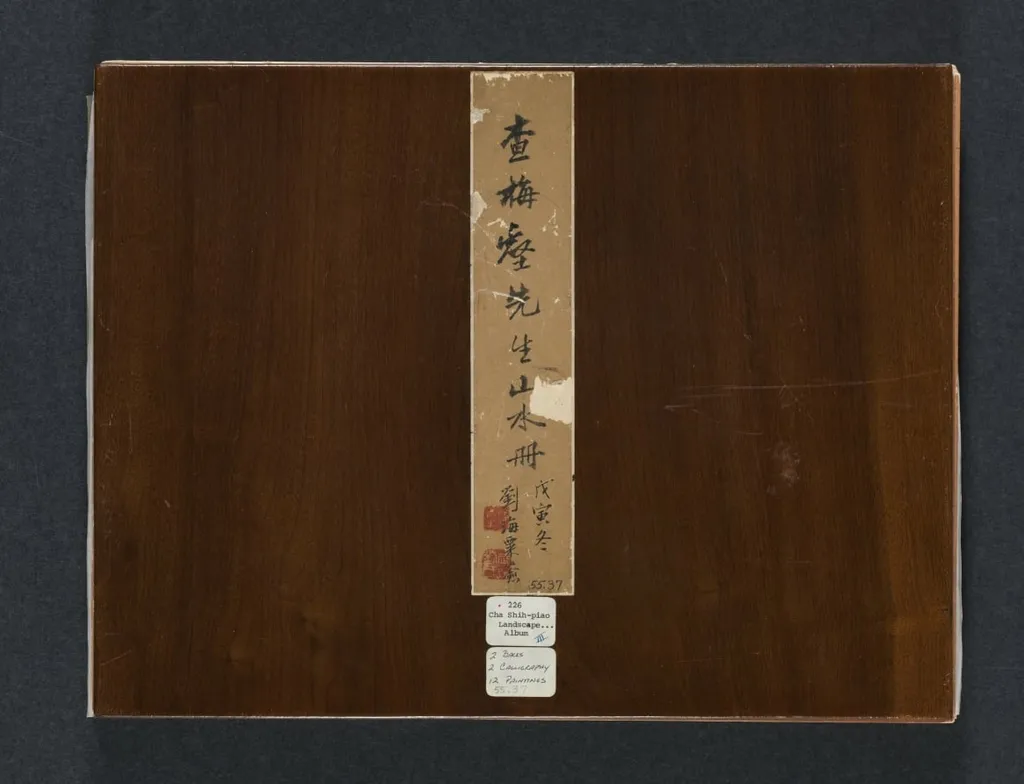 查梅壑先生山水冊
戊寅冬
劉海粟
55.37
226
Cha Shih-piao
Landscape...
Album III
2 Bdes
2 Calligraphy
12 Paintings
55.37